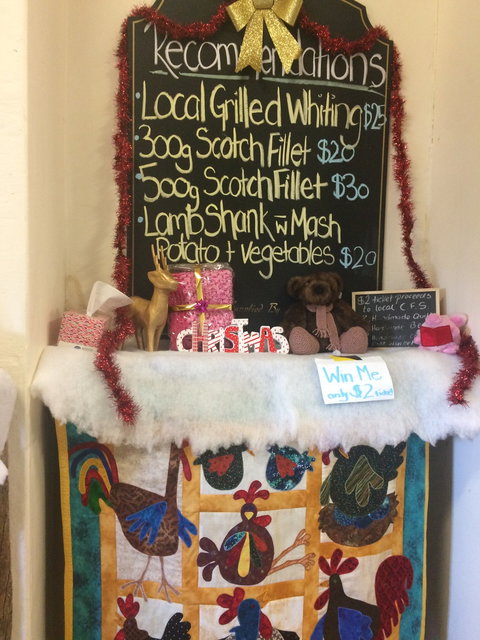 Recommendations
Local Grilled Whiting $25
300g Scotch Fillet $20
500g Scotch Fillet $30
Lamb Shank w Mash
Potato + Vegetables $20
CHRISTMAS
$2 ticket proceeds
to local C.F.S.
Win Me
only $2 ticket